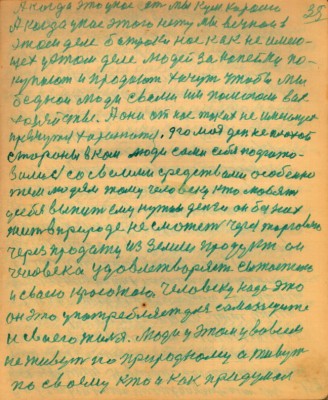 35
А когда это у нас есть мы кум короли
А когда у нас этого нету мы вечно в
этом деле батраки нас как не имею-
щих в этом деле людей за копейку по-
купают и продают хочут чтобы мы
бедной люди своим им помогали вас
хозяйстве. А они от нас таких не имеющих
прячутся хоронятся. это моя для не плохой
стороны в ком люди сами себя подгото-
вили со своими средствами особенно
тем людям тому человеку кто любят
себя выпить ему нужны деньги он без них
жить в природе не сможет чем торговать
через продажу из Земли продукт он
человека удовлетворяет
и своею красотою, человеку надо это
он это употребляет для самозащиты
и своего тела. Люди у этом у во всем
не живут по природному а живут
по своему кто и как придумал